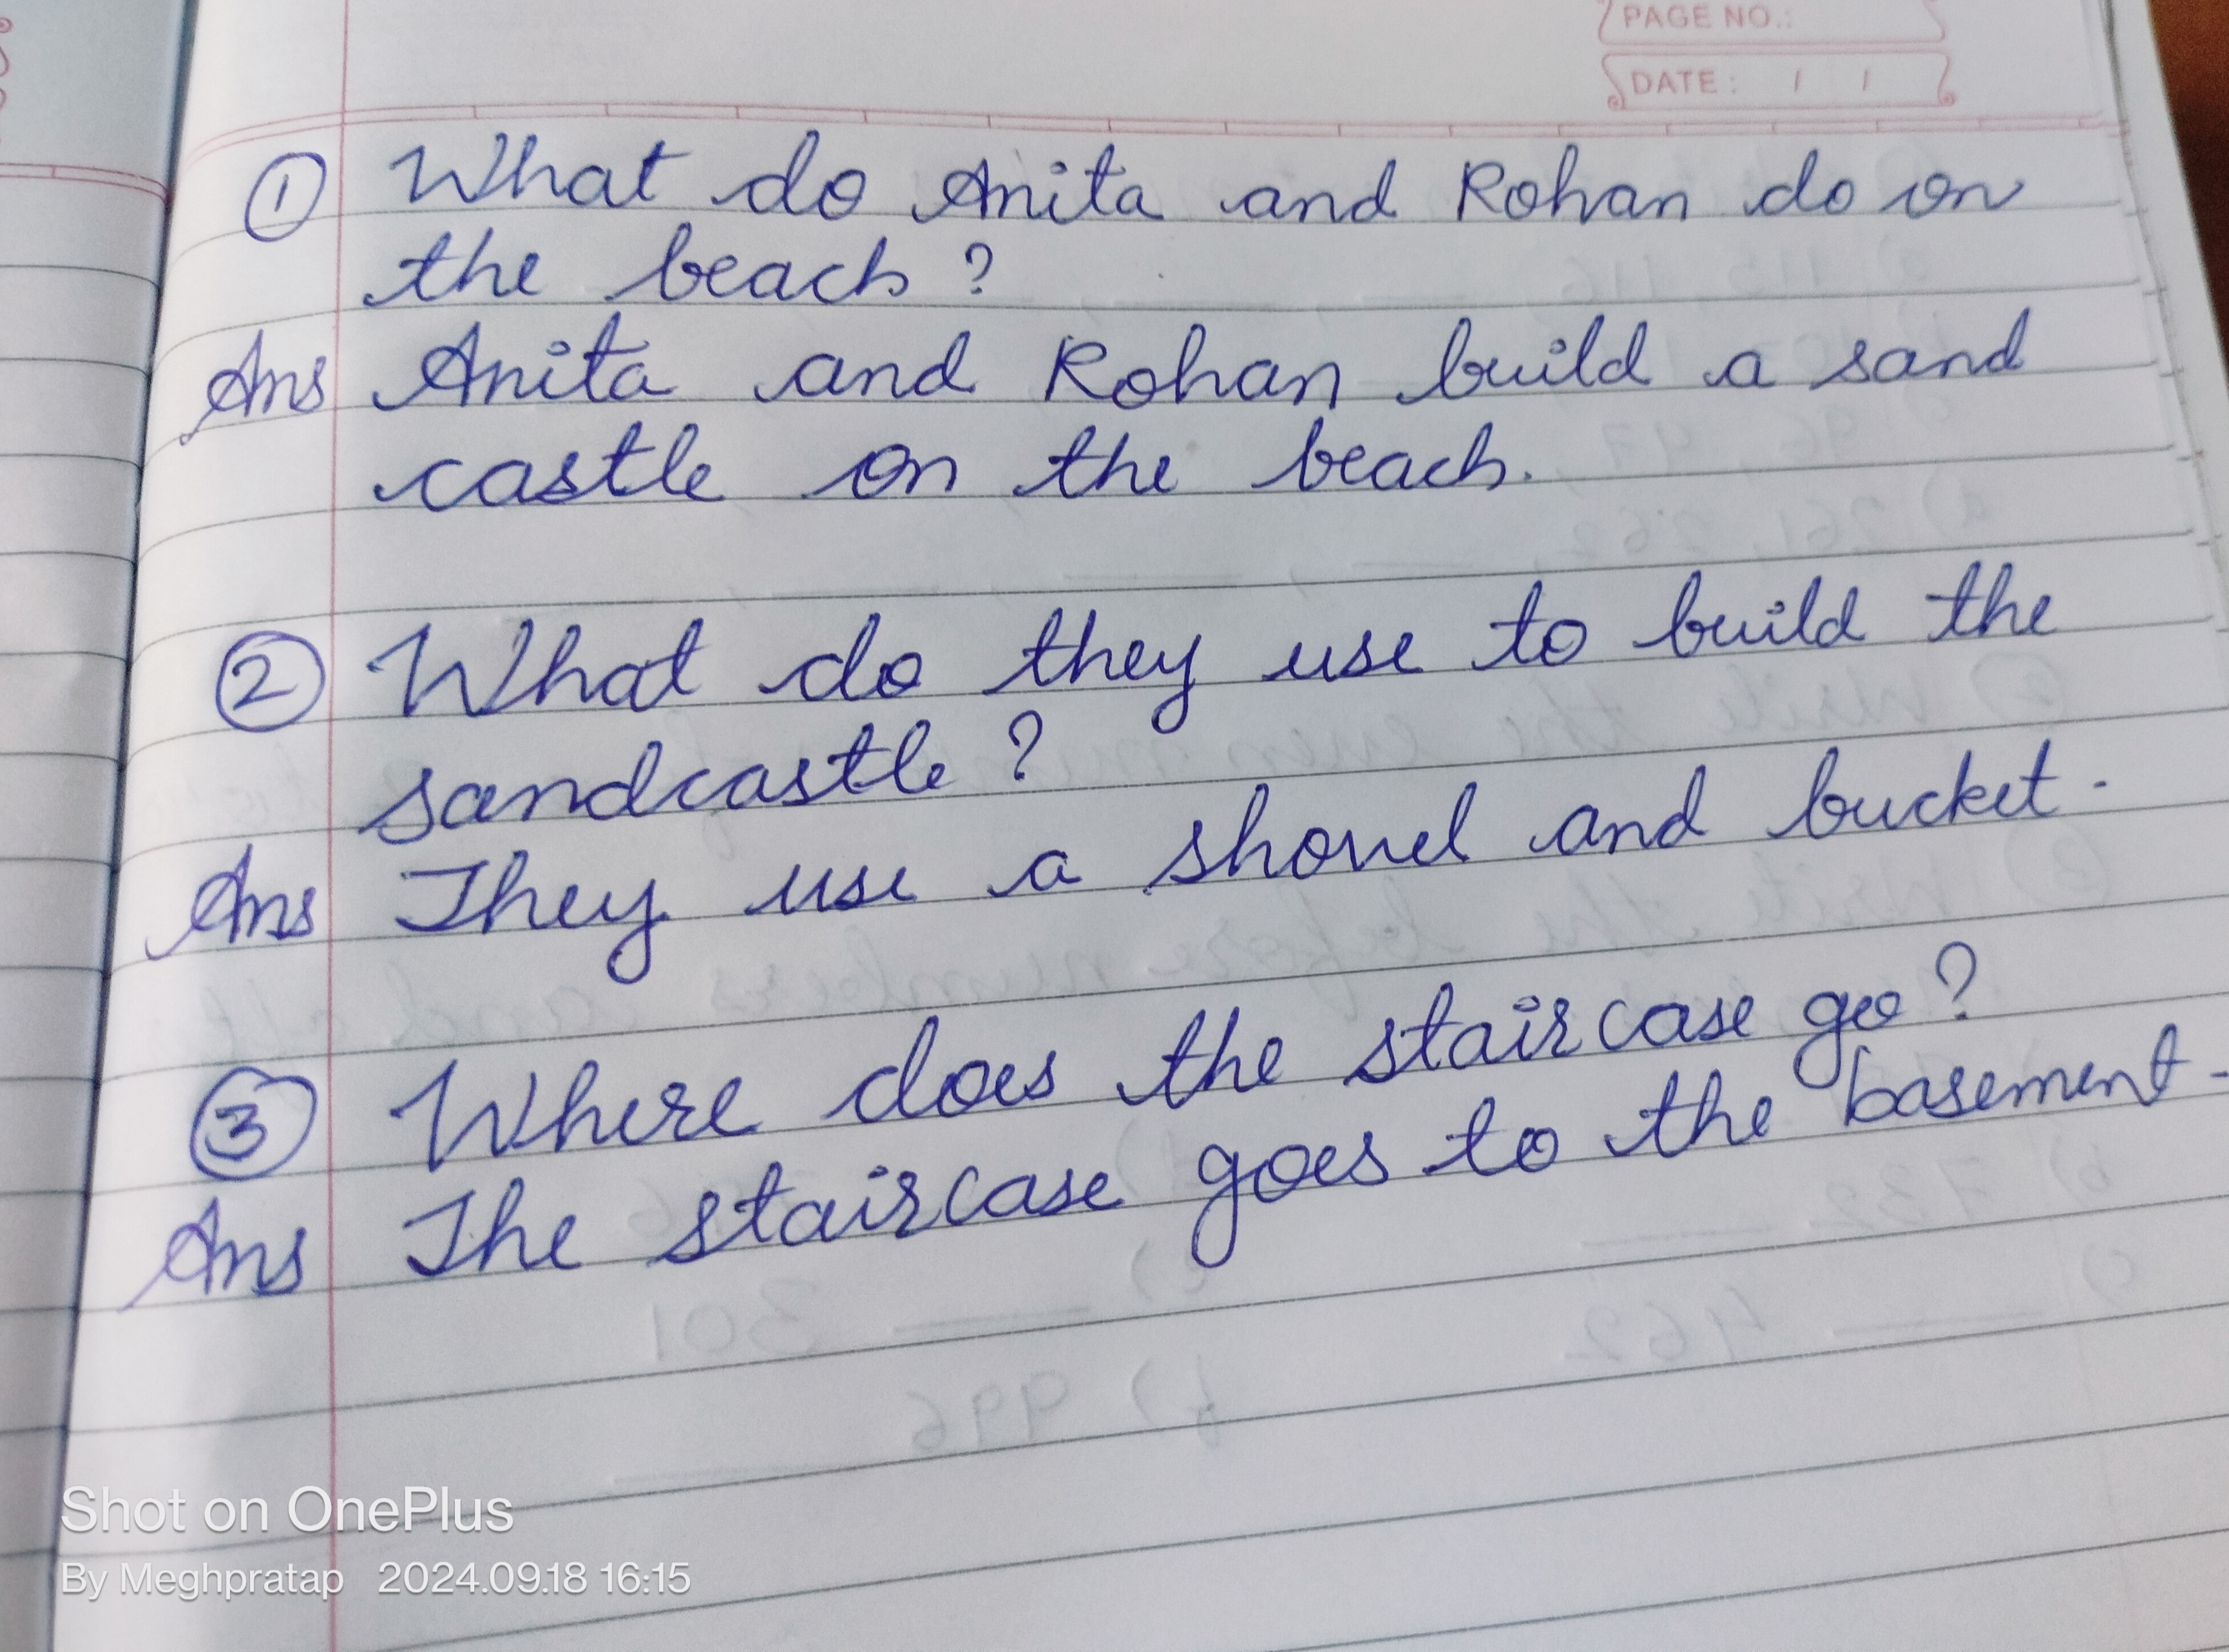 PAGE NO.:
DATE: / /
① What do Anita and Rohan do on
the beach?
Ans Anita and Rohan build a sand
castle on the beach.
② What do they use to build the
sandcastle?
Ans They use a shovel and bucket.
③ Where does the staircase go?
Ans The staircase goes to the basement.
Shot on OnePlus
By Meghpratap 2024.09.18 16:15